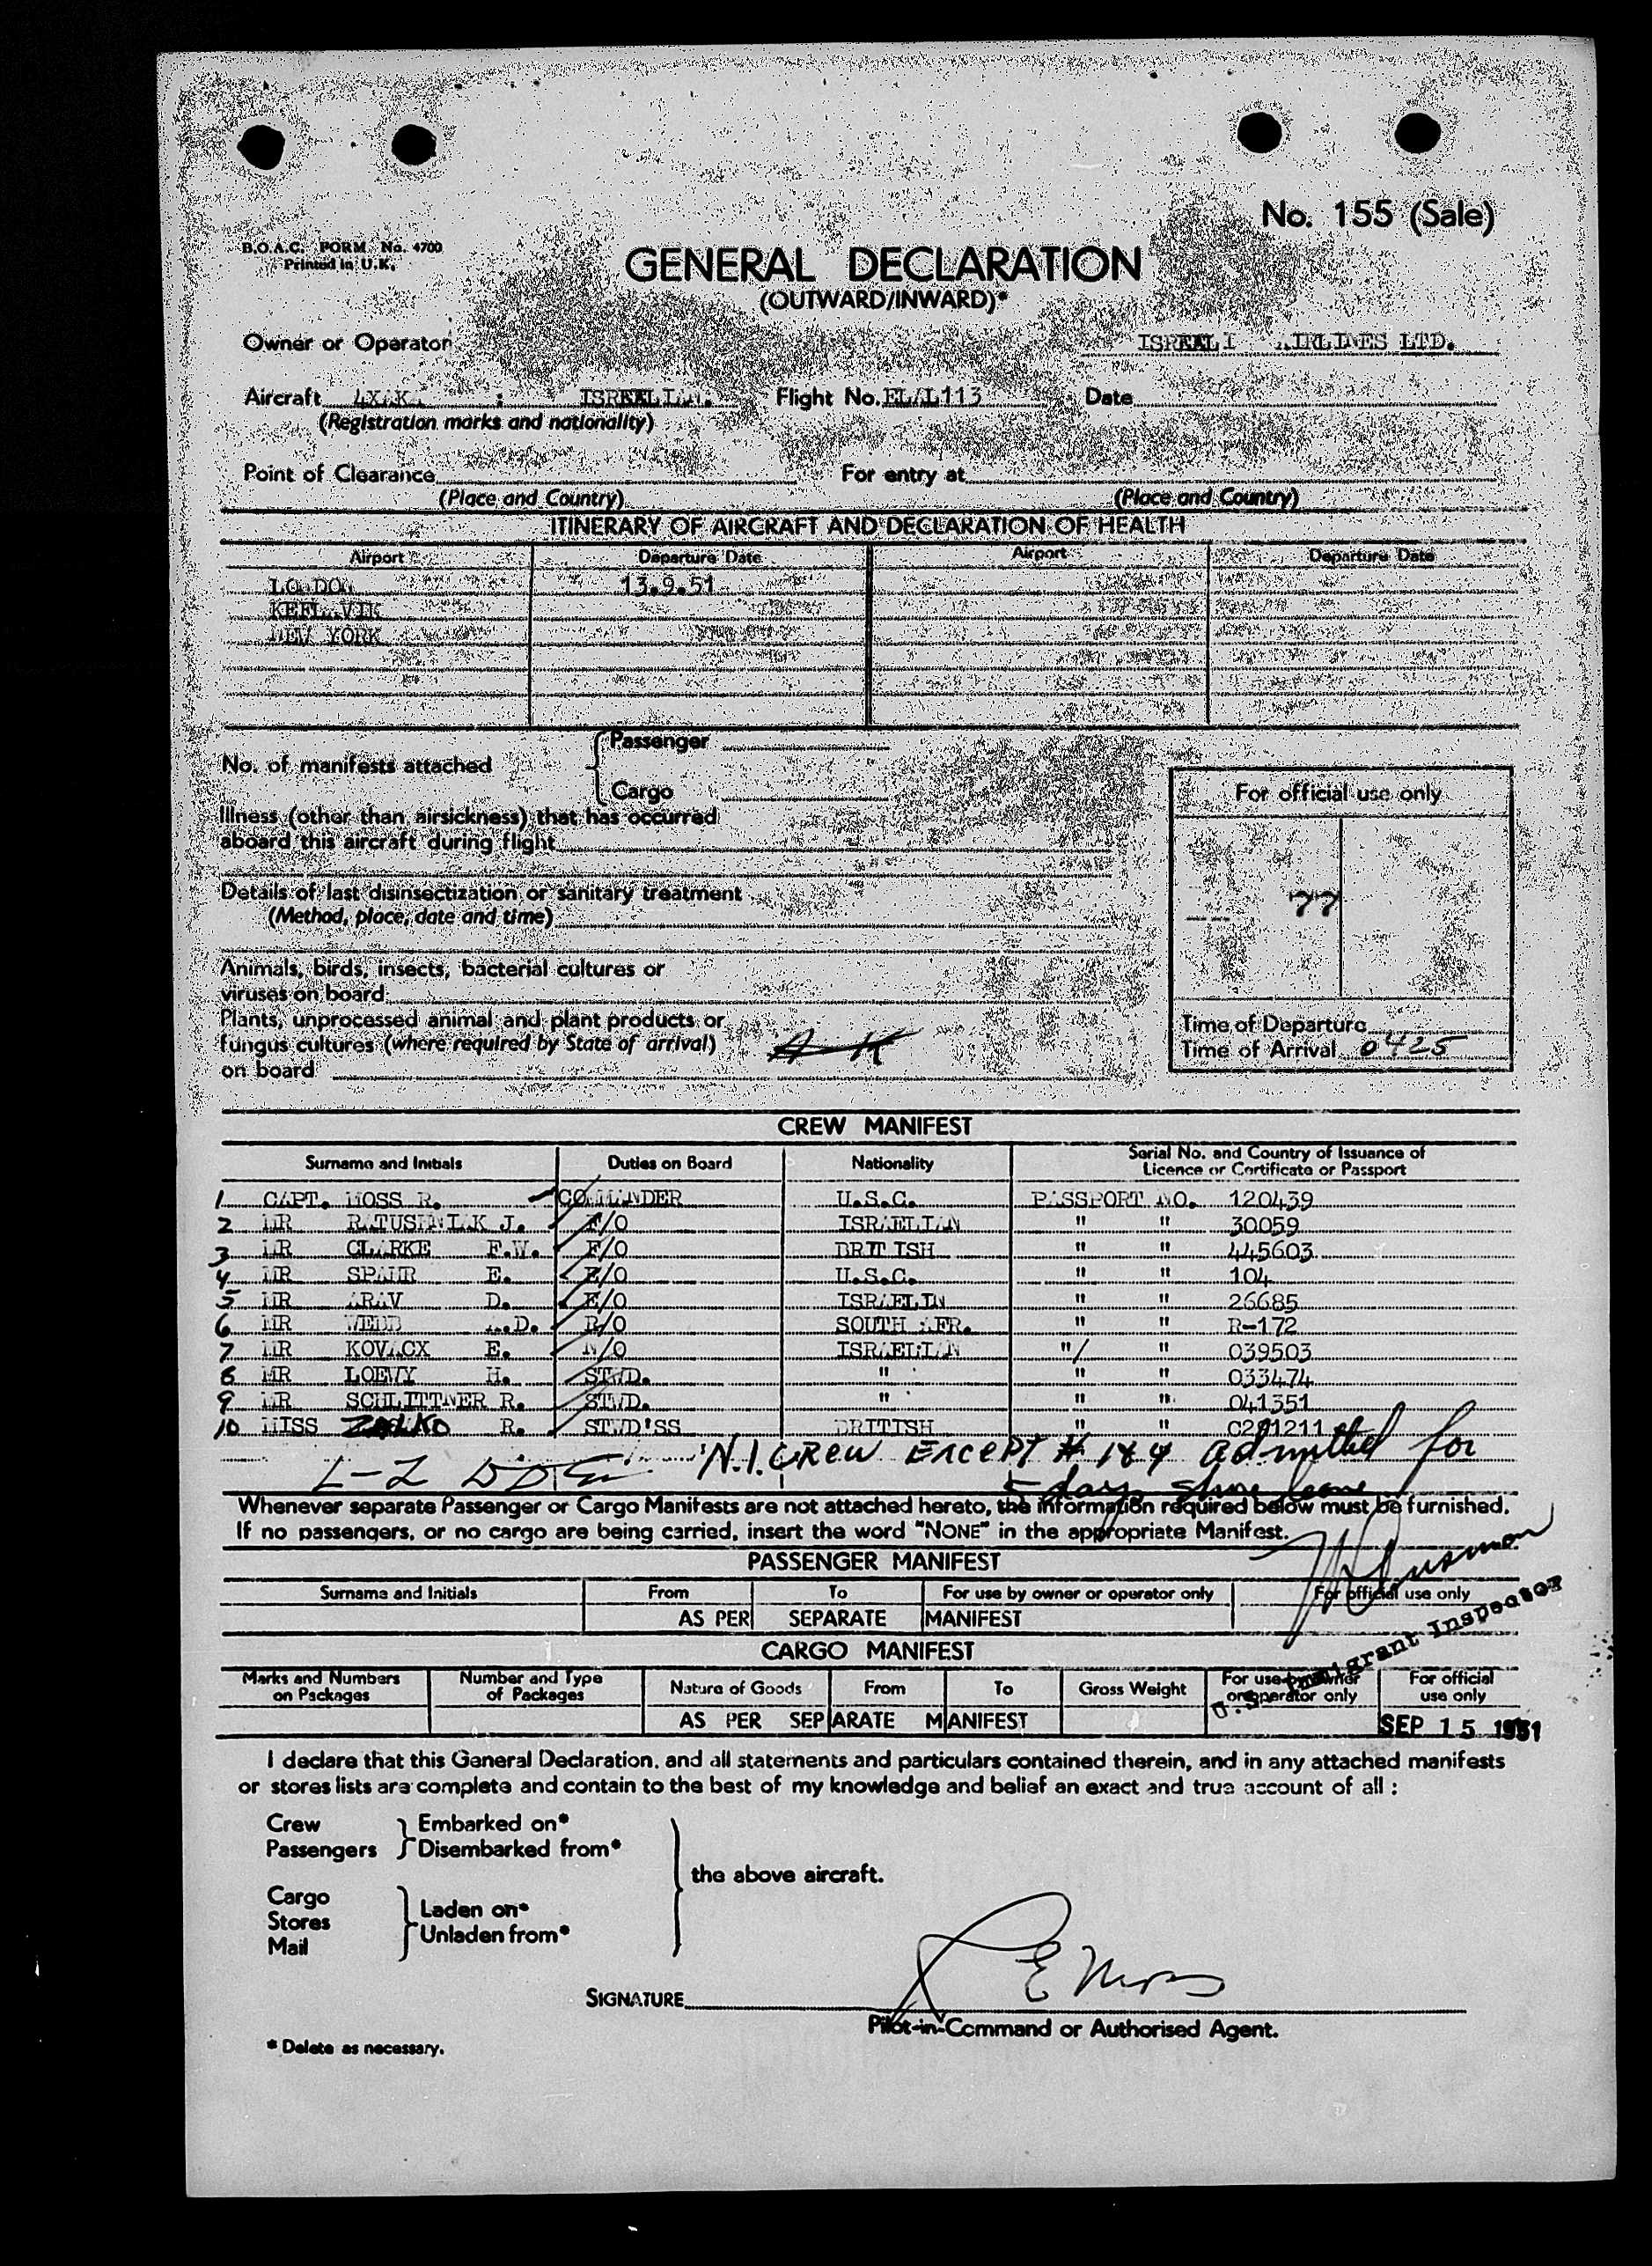 No. 155 (Sale)
B.O.A.C. FORM No. 4700
Printed in U.K.
GENERAL DECLARATION
(OUTWARD/INWARD)*
Owner or Operator AIRLINES LTD.
Aircraft Flight No. EL/L113 Date
(Registration marks and nationality)
Point of Clearance For entry at
(Place and Country) (Place and Country)
ITINERARY OF AIRCRAFT AND DECLARATION OF HEALTH
Airport Departure Date Airport Departure Date
LONDON 13.9.51
KEFLAVIK
NEW YORK
No. of manifests attached
Passenger
Cargo
Illness (other than airsickness) that has occurred
aboard this aircraft during flight
Details of last disinsectization or sanitary treatment
(Method, place, date and time)
Animals, birds, insects, bacterial cultures or
viruses on board
Plants, unprocessed animal and plant products or
fungus cultures (where required by State of arrival)
on board
For official use only
77
Time of Departure
Time of Arrival 0425
CREW MANIFEST
Surname and Initials Duties on Board Nationality Serial No. and Country of Issuance of Licence or Certificate or Passport
1 CAPT. MOSS R. COMMANDER U.S.C. PASSPORT NO. 120439
2 MR RATUSHNIAK J. F/O ISRAELIAN " " 30059
3 MR CLARKE F.W. F/O BRITISH " " 445603
4 MR SPAHR E. E/O U.S.C. " " 104
5 MR ARAV D. E/O ISRAELIN " " 26685
6 MR WEBB A.D. R/O SOUTH AFR. " " R-172
7 MR KOVACX E. N/O ISRAELIAN "/ " 039503
8 MR LOEWY H. STWD. " " " 033474
9 MR SCHLITTNER R. STWD. " " " 041351
10 MISS ZALKO R. STWD'SS BRITISH " " C291211
N.I. CREW EXCEPT # 1 & 4 admitted for
5 days shore leave
Whenever separate Passenger or Cargo Manifests are not attached hereto, the information required below must be furnished.
If no passengers, or no cargo are being carried, insert the word "NONE" in the appropriate Manifest.
PASSENGER MANIFEST
Surname and Initials From To For use by owner or operator only For official use only
AS PER SEPARATE MANIFEST
U.S. Immigrant Inspector
CARGO MANIFEST
Marks and Numbers on Packages Number and Type of Packages Nature of Goods From To Gross Weight For use by owner or operator only For official use only
AS PER SEPARATE MANIFEST
SEP 15 1951
I declare that this General Declaration, and all statements and particulars contained therein, and in any attached manifests
or stores lists are complete and contain to the best of my knowledge and belief an exact and true account of all :
Crew Embarked on*
Passengers Disembarked from*
the above aircraft.
Cargo
Stores Laden on*
Mail Unladen from*
R E Moss
SIGNATURE
Pilot-in-Command or Authorised Agent.
* Delete as necessary.